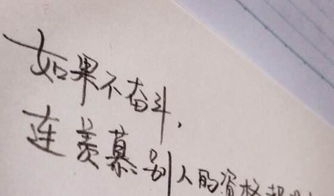 如果不奋斗，
连羡慕别人的资格都